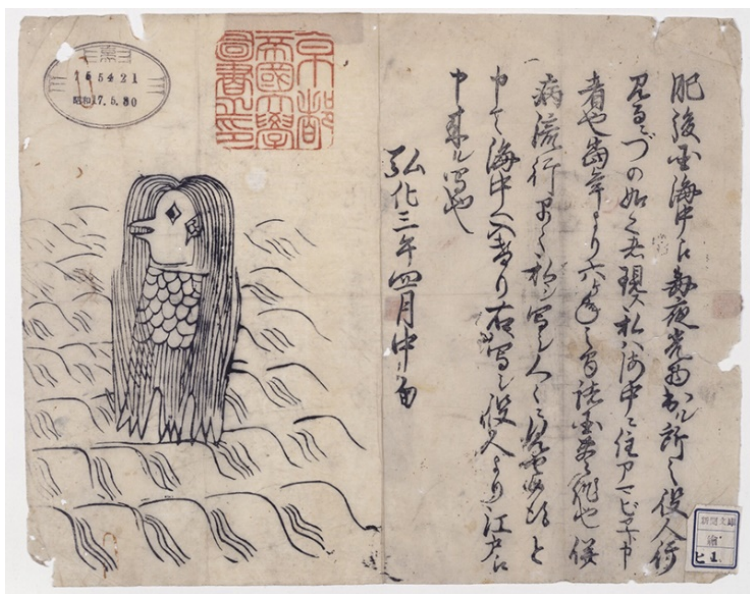 肥後国海中え毎夜光物出ル所之役人行
見るニづの如く者現ス私ハ海中ニ住アマビヱト申
者也当年より六ヶ年之間諸国豊作也併
病流行早々私ヲ写シ人々ニ見せ候得と
申て海中へ入けり右写シ役人より江戸え
申来ル写也
弘化三年四月中旬
京都
帝國大學
圖書之印
765421
昭和17.5.30
新聞文庫
繪